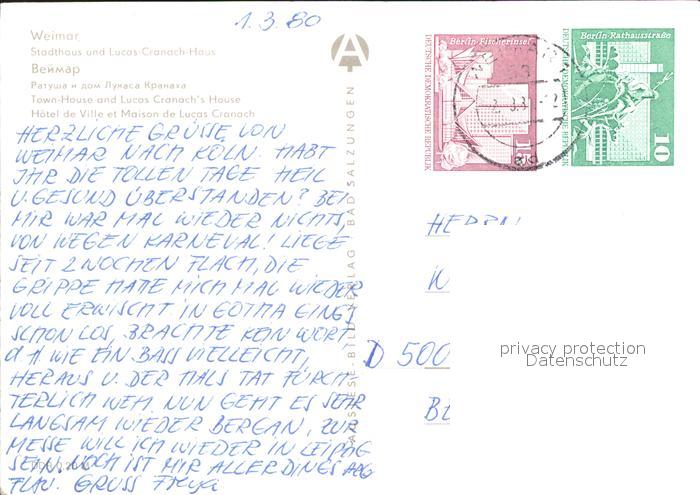 1.3.80
Weimar
Stadthaus und Lucas-Cranach-Haus
Веймар
Ратуша и дом Лукаса Кранаха
Town-House and Lucas Cranach's House
Hôtel de Ville et Maison de Lucas Cranach
HERZLICHE GRÜSSE VON
WEIMAR NACH KÖLN. HABT
IHR DIE TOLLEN TAGE HEIL
U. GESUND ÜBERSTANDEN? BEI
MIR WAR MAL WIEDER NICHTS,
VON WEGEN KARNEVAL! LIEGE
SEIT 2 WOCHEN FLACH, DIE
GRIPPE HATTE MICH MAL WIEDER
VOLL ERWISCHT. IN GOTHA GING'S
SCHON LOS, BRACHTE KEIN WORT
WIE EIN BASS VIELLEICHT,
HERAUS U. DER HALS TAT FÜRCH-
TERLICH WEH. NUN GEHT ES SEHR
LANGSAM WIEDER BERGAN, ZUR
MESSE WILL ICH WIEDER IN LEIPZIG
SEIN. NOCH IST MIR ALLERDINGS ARG
FLAU. GRUSS Freya
AUSLESE-BILD-VERLAG BAD SALZUNGEN
Berlin-Fischerinsel
DEUTSCHE DEMOKRATISCHE REPUBLIK
Berlin-Rathausstraße
DEUTSCHE DEMOKRATISCHE REPUBLIK
10
HERRN
D 500
privacy protection
Datenschutz